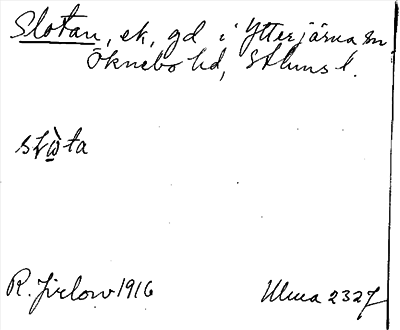 Slotan, ek, gd i Ytterjärna sn
Öknebo hd, Sthms l.
stὼta
R. Jirlow 1916
Ulma 2327